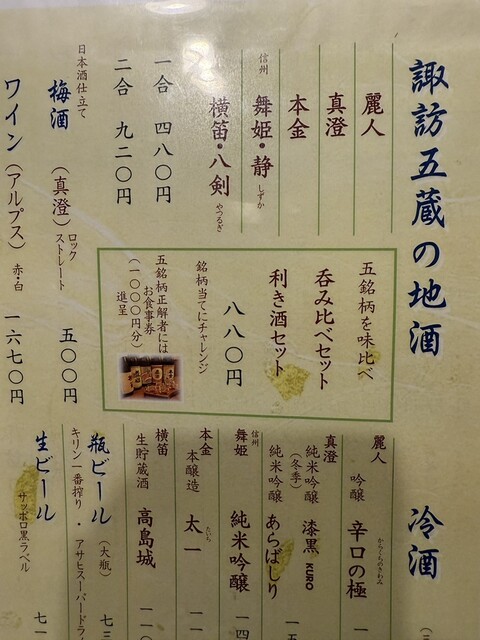 諏訪五蔵の地酒
麗人
真澄
本金
信州
舞姫・静
しずか
横笛・八剣
やつるぎ
一合 四八〇円
二合 九二〇円
日本酒仕立て
梅酒
(真澄)
ロック
ストレート
五〇〇円
ワイン(アルプス)
赤・白
一六七〇円
五銘柄を味比べ
呑み比べセット
利き酒セット
八八〇円
銘柄当てにチャレンジ
五銘柄正解者には
お食事券
(一〇〇〇円分)
進呈
冷酒
麗人
吟醸
辛口の極
からくちのきわみ
真澄
純米吟醸
(冬季)
漆黒 KURO
純米吟醸
あらばしり
信州
舞姫
純米吟醸
本金
本醸造
太一
たいち
横笛
生貯蔵酒
高島城
瓶ビール
(大瓶)
キリン一番搾り・アサヒスーパードラ
生ビール
サッポロ黒ラベル